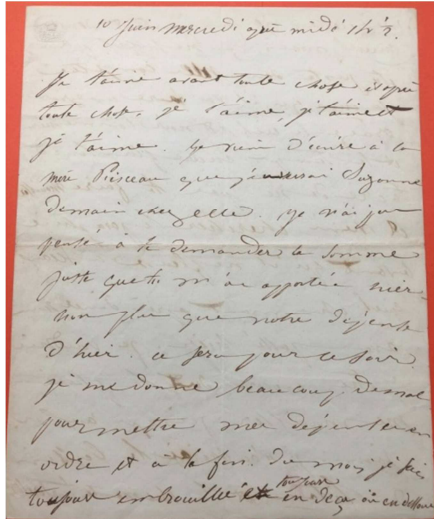 10 juin mercredi après midi 1h ½
Je t'aime avant toute chose et après
toute chose, je t'aime, je t'aime et
je t'aime. Je viens d'écrire à la
mère que j'enverrai Suzanne
demain chez elle. Je n'ai pas
pensé à te demander la somme
juste que tu m'as apportée hier
non plus que notre dépense
d'hier. Ce sera pour ce soir
je me donne beaucoup de mal
pour mettre mes dépenses en
ordre et à la fin du mois je suis
toujours embrouillée et toujours en deçà ou en dessous